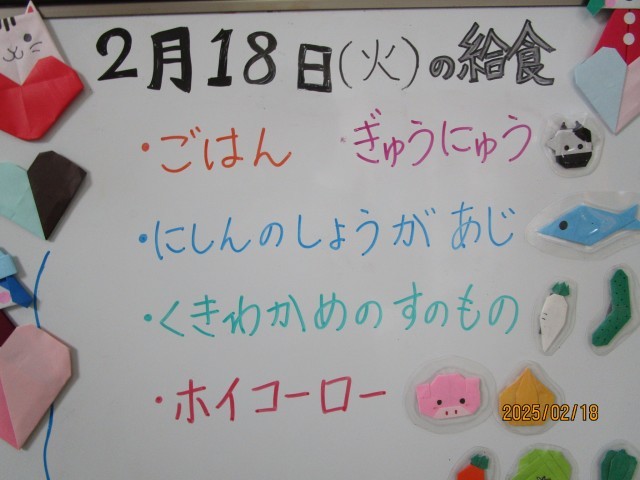 2月18日(火)の給食
・ごはん ・ぎゅうにゅう
・にしんのしょうが あじ
・くきわかめのすのもの
・ホイコーロー
2025/02/18